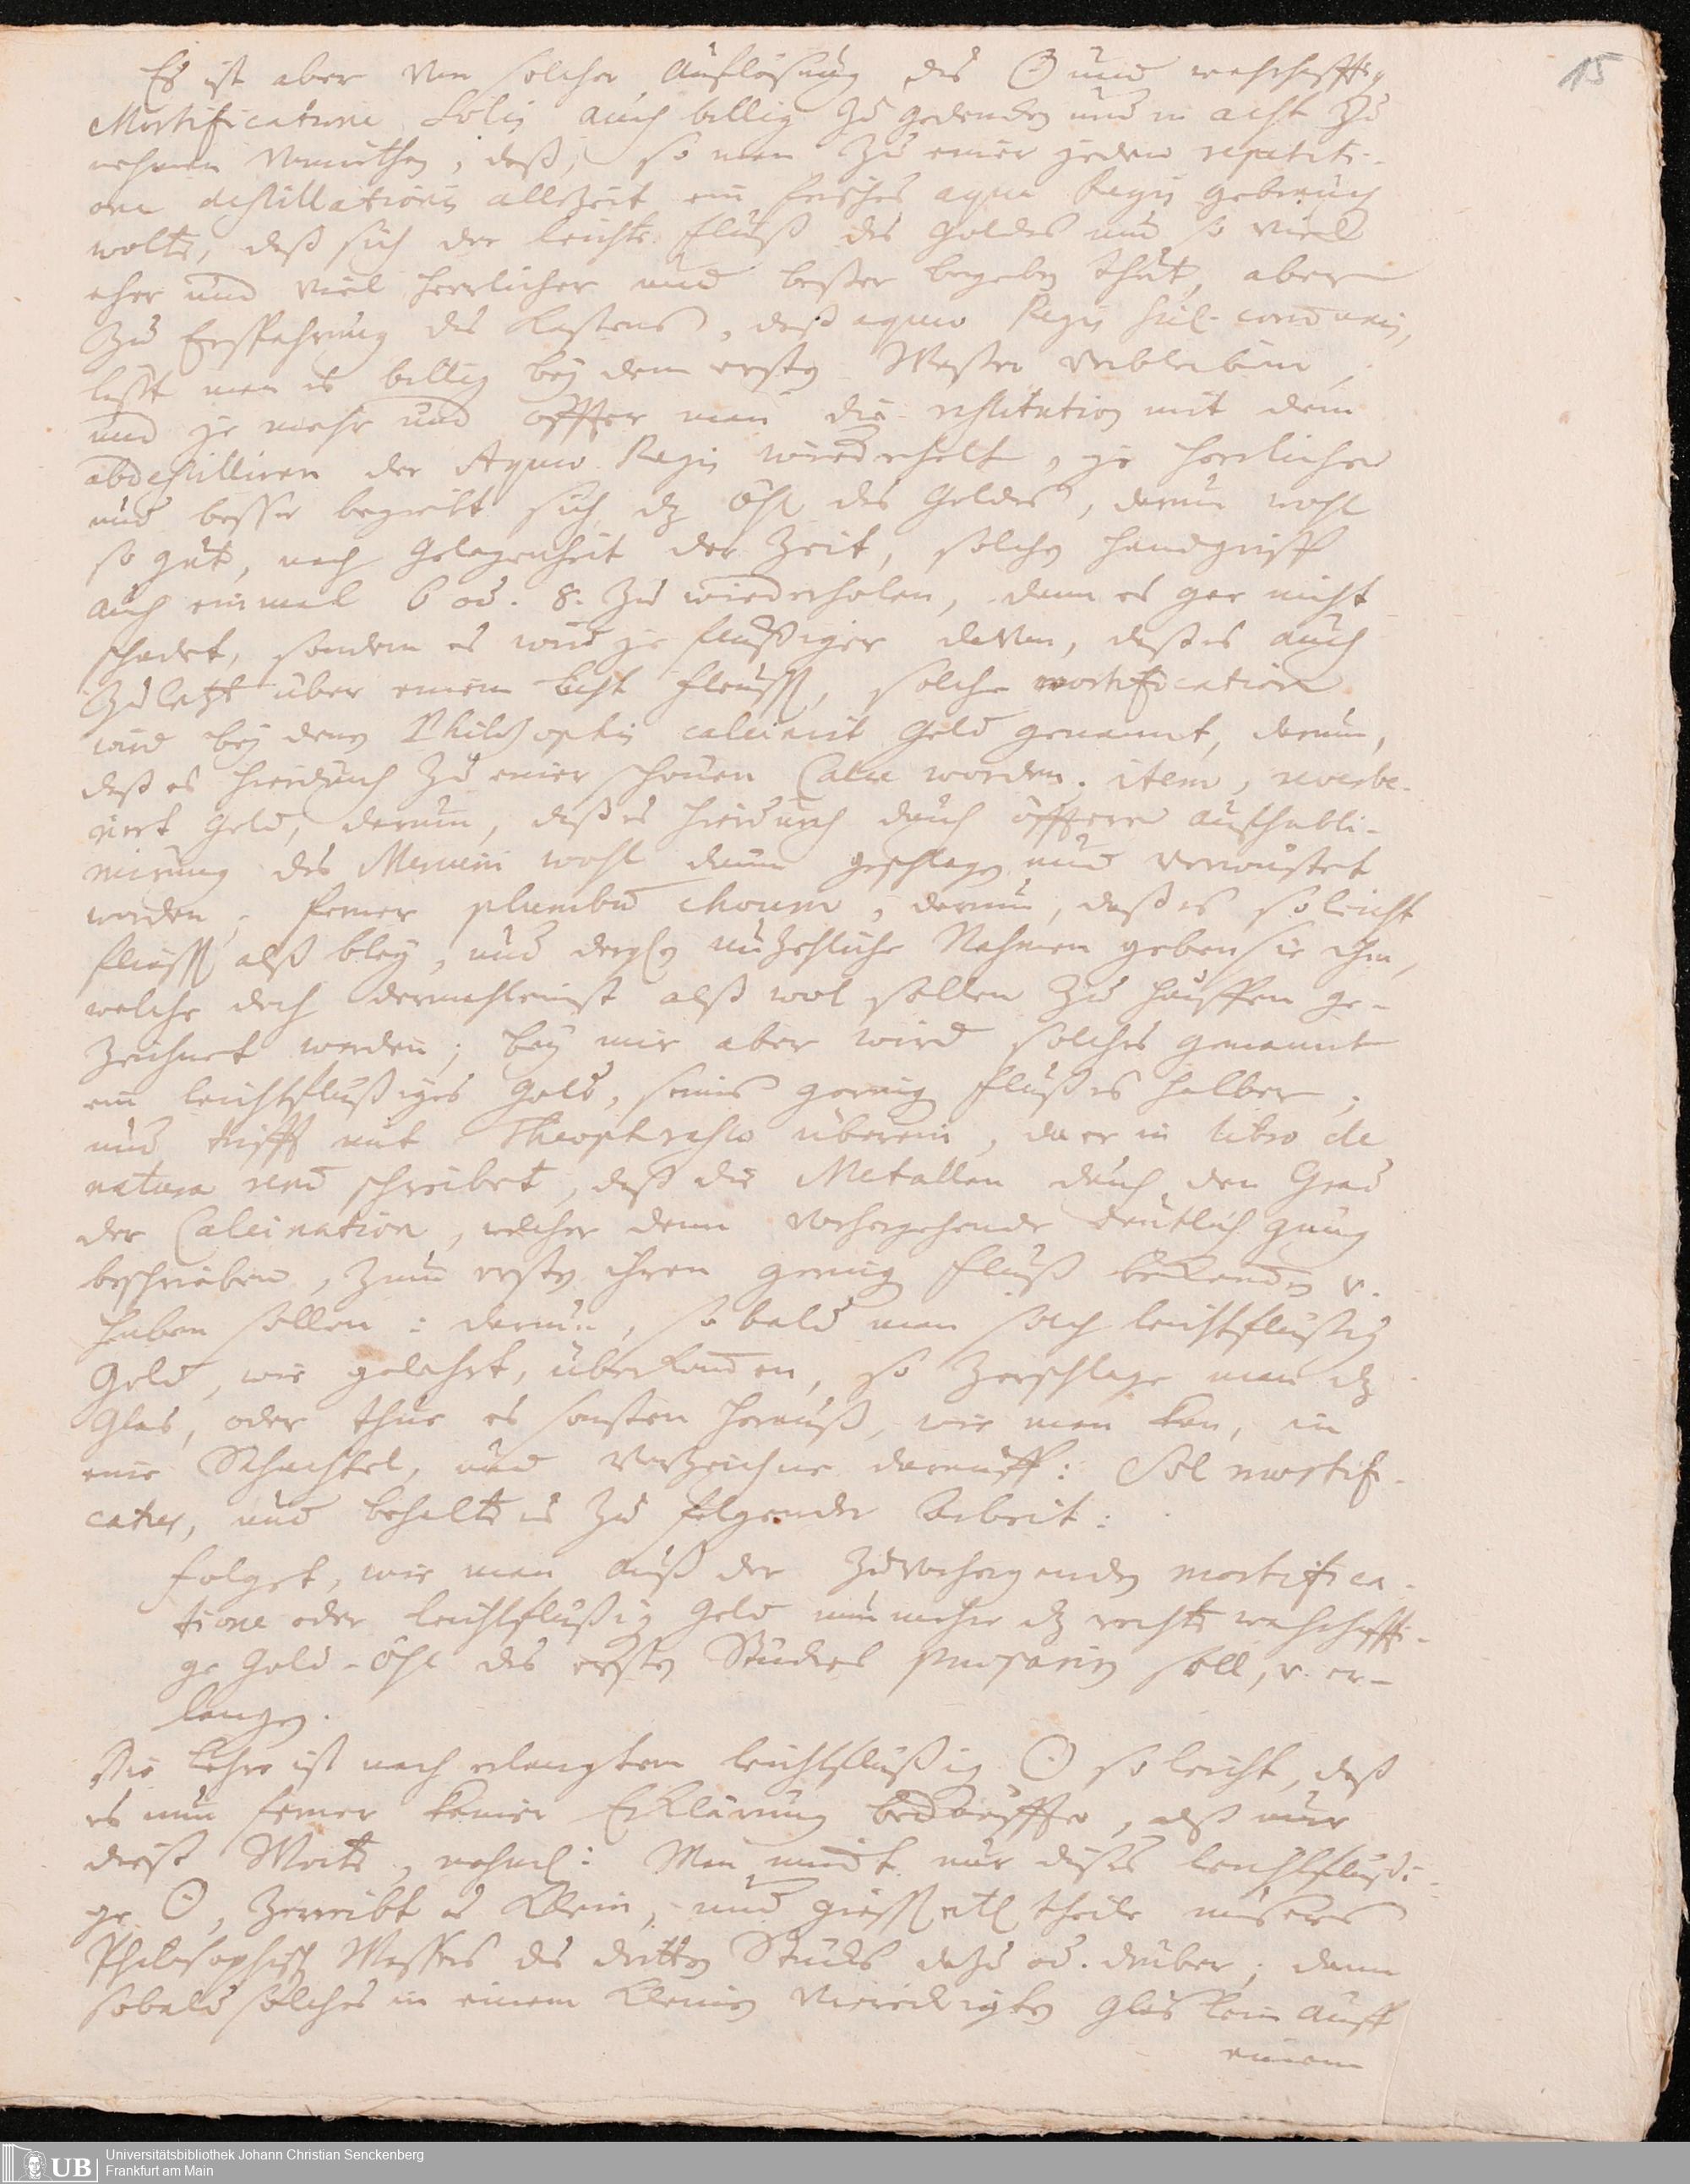 15
Es ist aber von solcher Aufflösung des ☉ und wahrhafftig
Mortificatione Solis auch billig zu gedencken und in acht zu
nehmen vonnöthen, daß, so man zu einer jeden repetiti-
one destillationis allezeit ein frisches aqua Regis gebrauch
wolte, daß sich der leichte Fluß des Goldes nur so viel
eher und viel herrlicher und beßer begeben thut, aber
zu Erspahrung des Kostens, daß aquæ Regis
lasst man es billig bey dem ersten Waßer verbleiben,
und je mehr und öffter man die restitution mit dem
abdestilliren der Aquæ Regis wiederholt, je herrlicher
und besser begiebt sich dz Öhl des Goldes, darum wohl
so gut, nach Gelegenheit der Zeit, solchen Handgriff
auch einmal 6 od. 8. zu wiederholen, dann es gar nicht
schadet, sondern es wird je flüßiger davon, daß es auch
zuletzt über einem Licht fleust, solche mortification
wird bey denen Philosophis calcinirt Gold genannt, darum,
daß es hierdurch zu einer schönen Calce worden. item, reverbe-
rirt Gold, darum, daß es hierdurch durch öfftere auffsubli-
mirung des Mercurii wohl geschlagen und
worden, ferner plumbum, darum, daß es so leicht
fliest alß Bley, und dergl. unzehliche Nahmen geben sie ihm,
welche doch dermahleinst alß wol sollen zu hauffen ge-
zeichnet werden; bey mir aber wird solches genannt
ein leichtflüßiges Gold, seines gering Flußes halber;
und trifft mit Theophrasto überein, da er in libro de
natura rerum schreibet, daß die Metallen durch den Grad
der Calcination, welcher denn vorhergehends deutlich gnug
beschrieben, zum ersten ihren gering Fluß bekommen v.
haben sollen: darum, so bald man solch leichtflüßig
Gold, wie gelehrt, überkommen, so zerschlage man dz
Glas, oder thue es sonsten herauß, wie man kan, in
eine Schachtel, und verzeichne darauff: Sol mortifi-
catus, und behalte es zu folgender Arbeit:
Folget, wie man auß der zuvorhergehenden mortifica-
tione oder leichtflüßig Gold nunmehr dz rechte wahrhaffti-
ge Gold-Öhl des ersten Stuckes præpariren soll, v. er-
langen.
Die Lehre ist nach erlangtem leichtflüßig ☉ so leicht, daß
es nun ferner keiner Erklärung bedürffe, alß nur
diese Worte, nehml: Man nimbt nur dieses leichtflüßi-
ge ☉, zerreibt es klein, und giesst etl. theile unsers
Philosophisch Wassers des dritten Stucks dazu od. drüber; dann
sobald solches in einem kleinen viereckigten Gläslein auff
einem
Universitätsbibliothek Johann Christian Senckenberg
Frankfurt am Main
UB